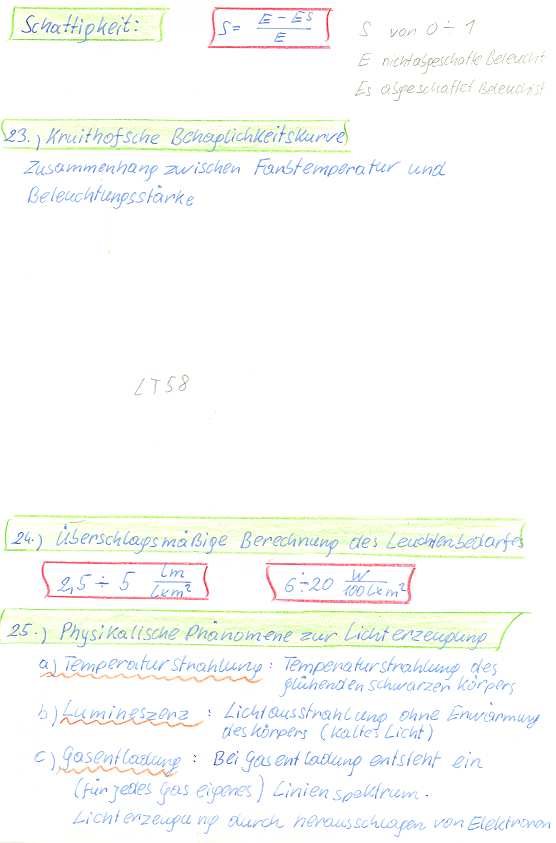 Schattigkeit: S = (E - Es) / E S von 0 ÷ 1
E nichtabgeschatte Beleucht
Es abgeschattet Beleuchtst
23.) Kruithofsche Bchaglichkeitskurve
Zusammenhang zwischen Farbtemperatur und
Beleuchtungsstärke
LT58
24.) Überschlagsmäßige Berechnung des Leuchtenbedarfes
2,5 ÷ 5 lm / lxm² 6÷20 W / 100 lxm²
25.) Physikalische Phänomene zur Lichterzeugung
a) Temperaturstrahlung: Temperaturstrahlung des
glühenden schwarzen Körpers
b) Lumineszenz : Lichtausstrahlung ohne Erwärmung
des Körpers (kaltes Licht)
c) Gasentladung : Bei Gasentladung entsteht ein
(für jedes Gas eigenes) Linienspektrum.
Lichterzeugung durch herausschlagen von Elektronen